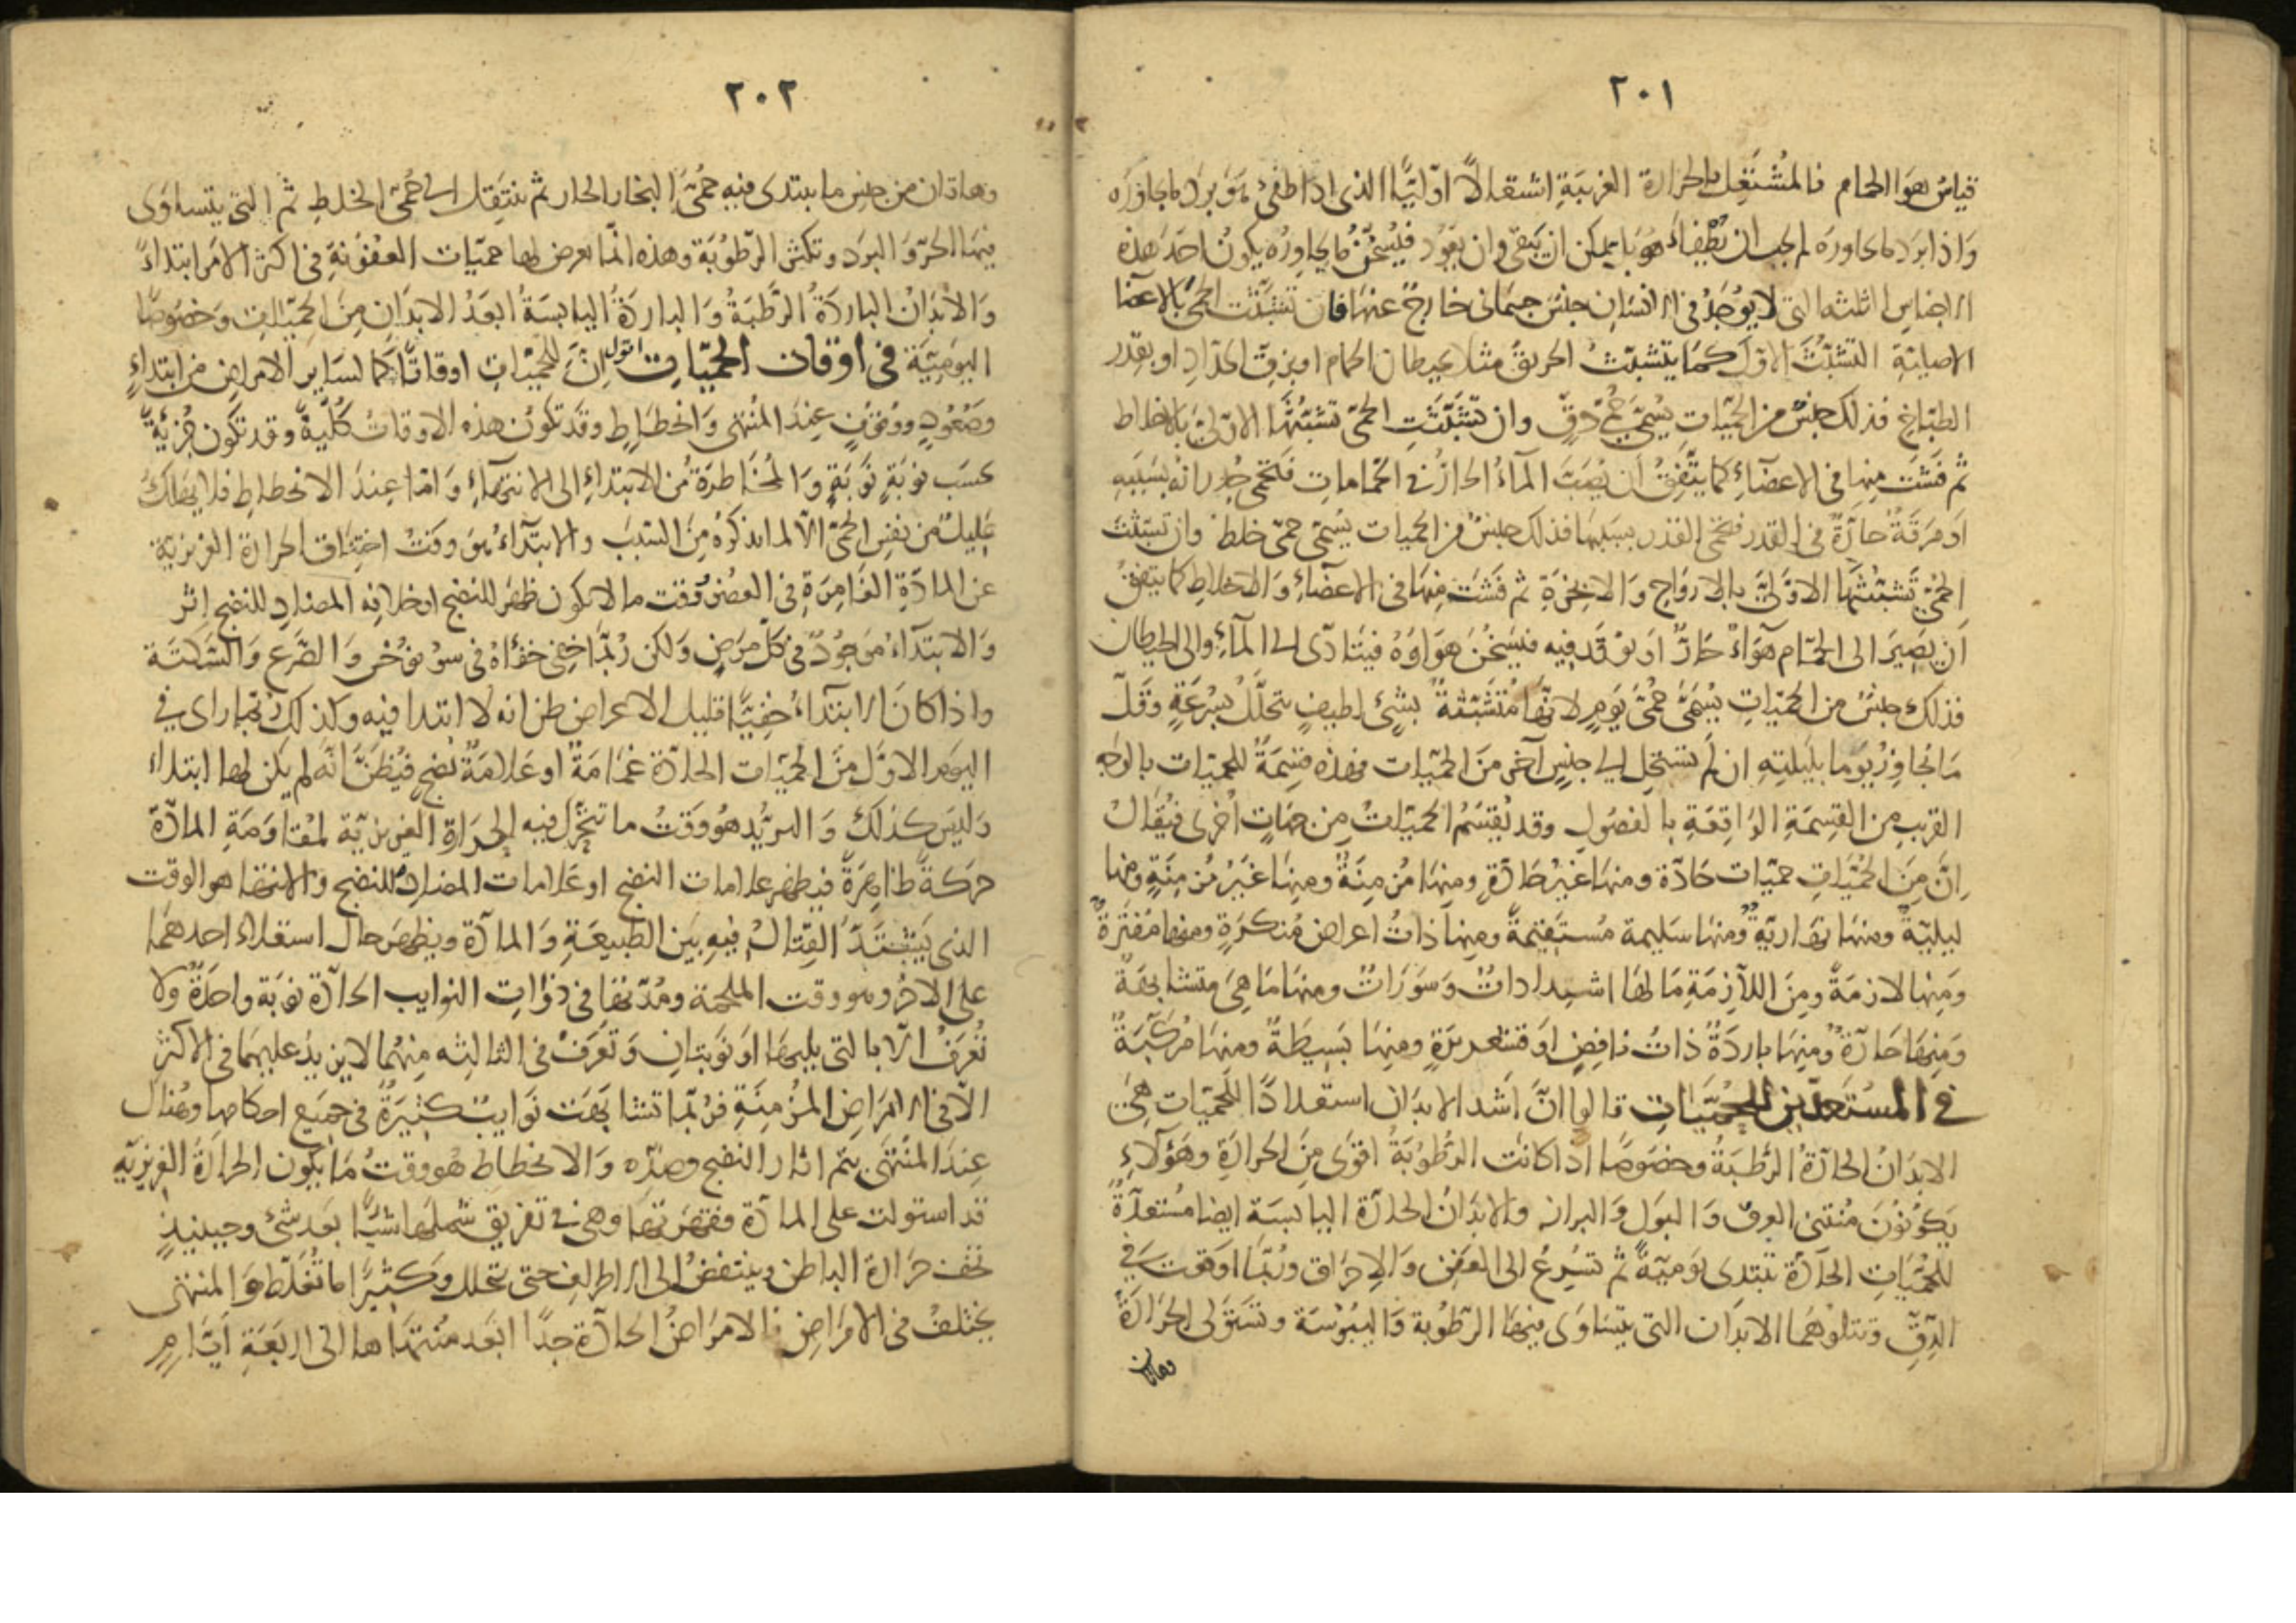 ٢٠١
قياس هواء الحمام فالمشتعل بالحرارة الغريبة اشتعالا اوليا الذي اذا طفئ هو برد ما يجاوره
واذا برد ما يجاوره لم يجب ان يطفئ هو بل يمكن ان يبقى وان يعود فيسخن ما يجاوره يكون احد هذه
الاجناس الثلثه التي لا يوجد في الانسان جنس جسماني خارج عنها فان تشبثت الحمى بالاعضا
الاصلية التشبث الاول كما يتشبث الحريق مثلا بحيطان الحمام او بزق الحداد او بقدر
الطباخ فذلك جنس من الحميات يسمى حمى دق وان تشبثت الحمى تشبثها الاولى بالاخلاط
ثم فشت منها في الاعضآء كما يتفق ان يصب المآء الحار في الحمامات فتحمى جدرانه بسببه
او مرقة حارة في القدر فتحمى القدر بسببها فذلك جنس من الحميات يسمى حمى خلط وان تشبثت
الحمى تشبثها الاولى بالارواح والابخرة ثم فشت منها في الاعضآء والاخلاط كما يتفق
ان يصير الى الحمام هوآء حار او يوقد فيه فيسخن هواؤه فيتادى الى المآء والى الحيطان
فذلك جنس من الحميات يسمى حمى يوم لانها متشبثة بشيء لطيف يتحلل بسرعة وقل
ما تجاوز يوما بليلته ان لم تستحل الى جنس آخر من الحميات فهذه قسمة للحميات بالوجه
القريب من القسمة الواقعة بالفصول وقد تقسم الحميات من جهات اخرى فيقال
ان من الحميات حميات حادة ومنها غير حادة ومنها مزمنة ومنها غير مزمنة ومنها
ليلية ومنها نهارية ومنها سليمة مستقيمة ومنها ذات اعراض منكرة ومنها مفترة
ومنها لازمة ومن اللازمة ما لها اشتدادات وسورات ومنها ما هي متشابهة
ومنها حارة ومنها باردة ذات نافض او قشعريرة ومنها بسيطة ومنها مركبة
في المستعدين للحميات قالوا ان اشد الابدان استعدادا للحميات هي
الابدان الحارة الرطبة وخصوصا اذا كانت الرطوبة اقوى من الحرارة وهؤلآء
يكونون منتني العرق والبول والبراز والابدان الحارة اليابسة ايضا مستعدة
للحميات الحادة تبتدى يومية ثم تسرع الى العفن والاحراق وربما اوقعت في
الدق وتتلوهما الابدان التي يتساوى فيها الرطوبة واليبوسة وتستولى الحرارة
وهاذان
٢٠٢
وهاذان من جنس ما يبتدى فيه حمى البخار الحار ثم ينتقل الى حمى الخلط ثم التي يتساوى
فيها الحر والبرد وتكثر الرطوبة وهذه انما يعرض لها حميات العفونة في اكثر الامر ابتداء
والابدان الباردة الرطبة والباردة اليابسة ابعد الابدان من الحميات وخصوصا
اليومية في اوقات الحميات اقول ان للحميات اوقاتا كما لساير الامراض من ابتداء
وصعود ووقوف عند المنتهى وانحطاط وقد تكون هذه الاوقات كلية وقد تكون جزئية
بحسب نوبة نوبة والمخاطرة من الابتداء الى الانتهآء واما عند الانحطاط فلا يهلك
عليل من نفس الحمى الا لما نذكره من السبب والابتدآء هو وقت اختناق الحرارة الغريزية
عن المادة الغامرة في العضو وقت ما لا يكون ظهر للنضج او خلافه المضاد للنضج اثر
والابتدآء موجود في كل مرض ولكن ربما خفي خفآء في سونوخس والصرع والسكتة
واذا كان الابتدآء خفيا قليل الاعراض ظن انه لا ابتدا فيه وكذلك ربما راى في
اليوم الاول من الحميات الحادة غمامة او علامة نضج فيظن انه لم يكن لها ابتداء
وليس كذلك والتزيد هو وقت ما تتحرك فيه الحرارة الغريزية لمقاومة المادة
حركة ظاهرة فيظهر علامات النضج او علامات المضاد للنضج والانتها هو الوقت
الذي يشتد القتال فيه بين الطبيعة والمادة ويظهر حال استعلاء احدهما
على الاخر وهو وقت الملحمة ومدتها في ذوات النوايب الحادة نوبة واحدة ولا
تعرف الا بالتي يليها او نوبتان وتعرف في الثالثه منهما لا يزيد عليهما في الاكثر
الا في الامراض المزمنة فربما تشابهت نوايب كثيرة في جميع احكامها وهناك
عند المنتهى يتم اثار النضج وضده والانحطاط هو وقت ما يكون الحرارة الغريزيه
قد استولت على المادة وقهرتها وهي في تفريق شملها شيئا بعد شئ وحينيذ
تخف حرارة الباطن وينتفض الى الاطراف حتى تتحلل وكثيرا ما تغلط والمنتهى
يختلف في الامراض فالامراض الحادة جدا ابعد منتهاها الى اربعة ايام